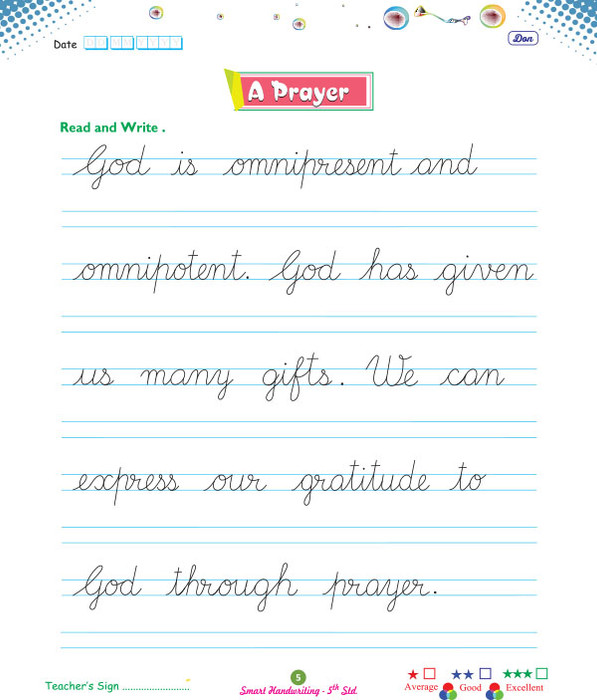 Date
Don
A Prayer
Read and Write .
God is omnipresent and
omnipotent. God has given
us many gifts. We can
express our gratitude to
God through prayer.
Teacher's Sign ..........................
5
Smart Handwriting - 5th Std.
Average Good Excellent